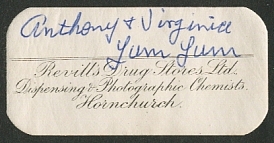 Anthony & Virginia
Yum Yum
Revitt's Drug Stores Ltd.
Dispensing & Photographic Chemists.
Hornchurch.